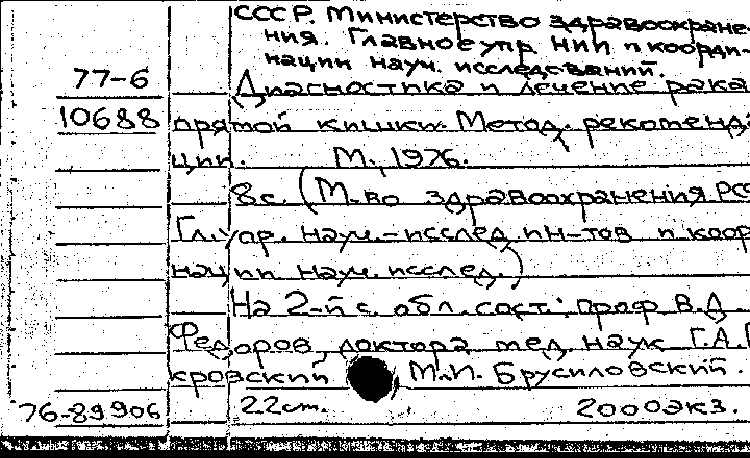 СССР. Министерство здравоохране-
ния. Главное упр. НИИ и коорди-
нации науч. исследований.
77-6
Диагностика и лечение рака
10688
прямой кишки. Метод. рекоменда
ции. М., 1976.
8 с. (М-во здравоохранения РС
Гл. упр. науч.-исслед. ин-тов и коор
нации науч. исслед.)
На 2-й с. обл. сост.: проф. В.Д.
Федоров, доктора мед. наук Г.А.
кровский М.И. Брусиловский.
76-89906
22 см. 2000 экз.